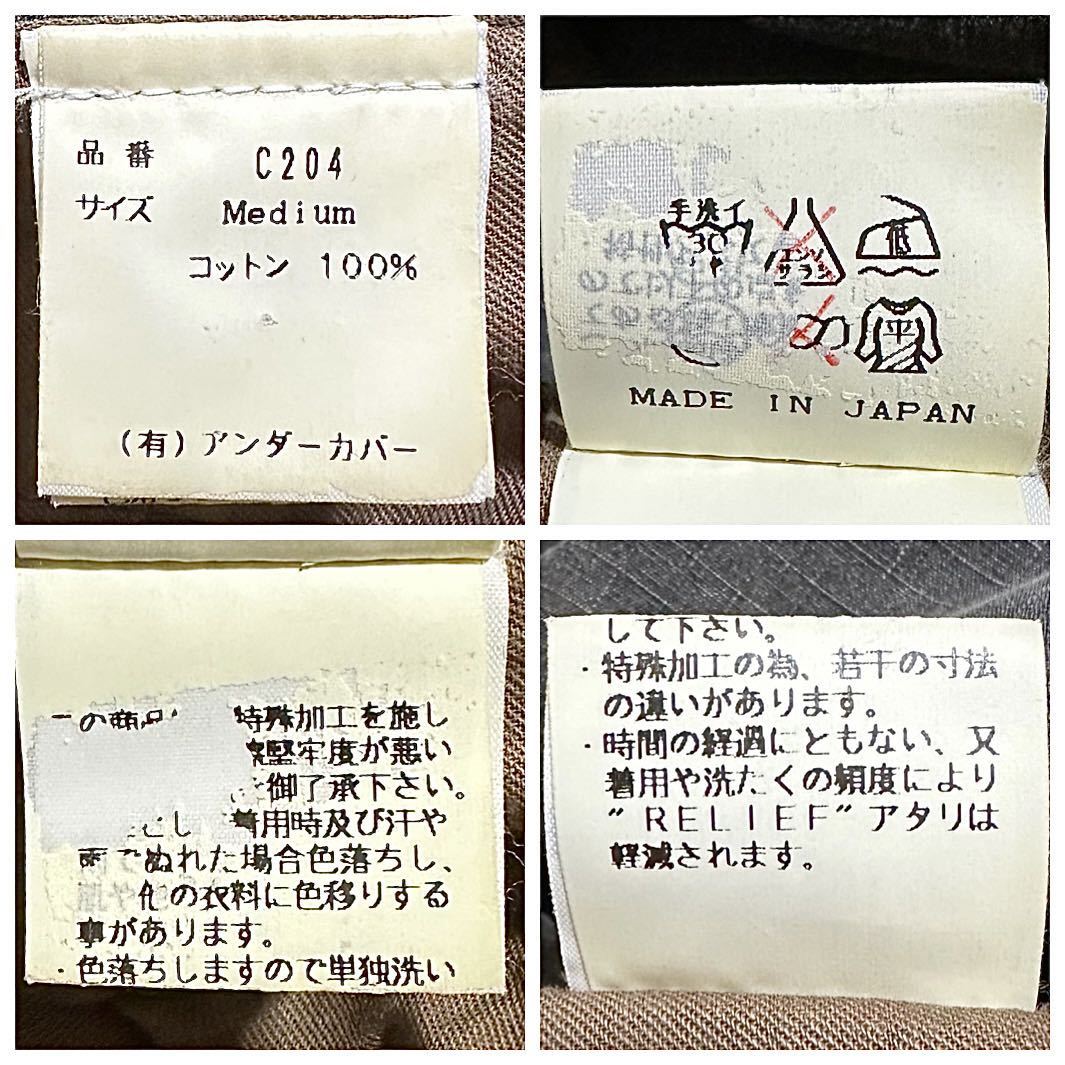 品番 C204
サイズ Medium
コットン 100%
(有)アンダーカバー
手洗イ
30
エンソ
サラシ
低
平
MADE IN JAPAN
の商品 特殊加工を施し
堅牢度が悪い
御了承下さい。
着用時及び汗や
雨でぬれた場合色落ちし、
の衣料に色移りする
事があります。
・色落ちしますので単独洗い
して下さい。
・特殊加工の為、若干の寸法
の違いがあります。
・時間の経過にともない、又
着用や洗たくの頻度により
"RELIEF"アタリは
軽減されます。